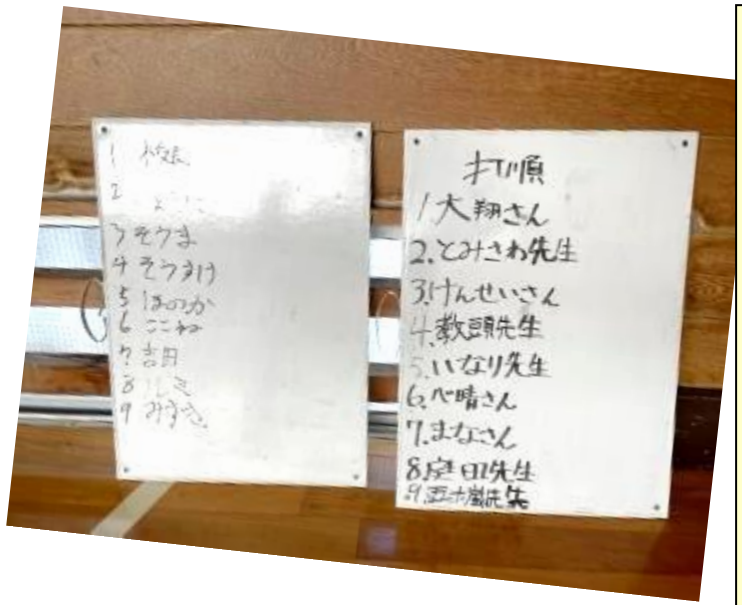 1 校長
2
3 そうま
4 そうすけ
5 ほのか
6 ここね
7 吉田
8
9 みずき
打順
1 大翔さん
2.とみさわ先生
3.けんせいさん
4.教頭先生
5.いなり先生
6.心晴さん
7.まなさん
8.定田先生
9.五十嵐先生